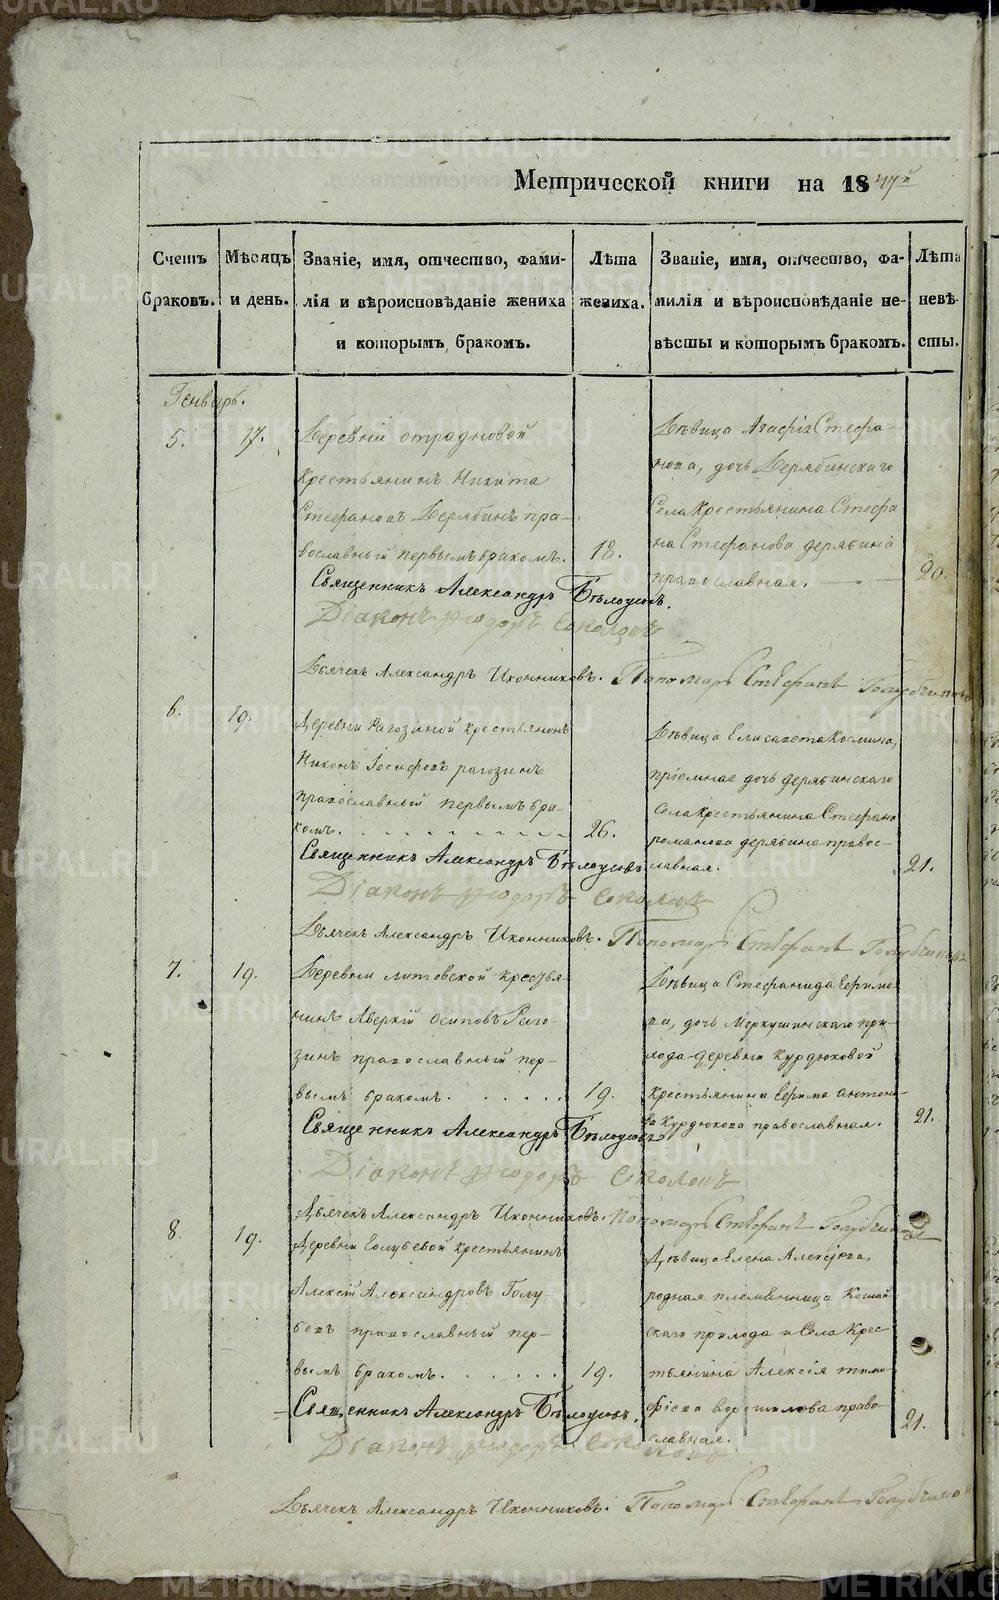 Метрической книги на 1847й
Счетъ браковъ.
Мѣсяцъ и день.
Званіе, имя, отчество, фами-
лія и вѣроисповѣданіе жениха
и которымъ бракомъ.
Лѣта жениха.
Званіе, имя, отчество, фа-
милія и вѣроисповѣданіе не-
вѣсты и которымъ бракомъ.
Лѣта невѣ-
сты.
Генварь.
5. 17.
Деревни отрадновой
крестьянинъ Никита
Стефановъ Дерябинъ пра-
вославный первымъ бракомъ. 18.
Дѣвица Агафія Стефа-
нова, дочь Дерябинскаго
Села Крестьянина Стефа
на Стефанова дерябина
православная. 20.
Священникъ Александръ Бѣлоусовъ.
Діаконъ Ѳеодоръ Соколовъ
Дьячекъ Александръ Иконниковъ. Пономарь Стефанъ Голубчиковъ
6. 19.
Деревни Рагозиной крестьянинъ
Никонъ Іосифовъ рагозинъ
православный первымъ бра-
комъ. 26.
Дѣвица Елисавета Космина,
пріемная дочь дерябинскаго
Села крестьянина Стефано
романова дерябина правос-
лавная. 21.
Священникъ Александръ Бѣлоусовъ
Діаконъ Ѳеодоръ Соколовъ
Дьячекъ Александръ Иконниковъ. Пономарь Стефанъ Голубчиковъ
7. 19.
Деревни литовской кресть-
нинъ Аверкій осиповъ Раго-
зинъ православный пер-
вымъ бракомъ. 19.
Дѣвица Стефанида Ефимо
ва, дочь Меркушинскаго при-
хода деревни Курдюковой
крестьянина Ефима антоно-
ва Курдюкова православная. 21.
Священникъ Александръ Бѣлоусовъ
Діаконъ Ѳеодоръ Соколовъ
Дьячекъ Александръ Иконниковъ. Пономарь Стефанъ Голубчиковъ
8. 19.
Деревни Голубевой крестьянинъ
Алексій Александровъ Голу-
бевъ православный пер-
вымъ бракомъ. 19.
Дѣвица Елена Алексѣева,
родная племянница Кошай
скаго прихода и Села Крес
тьянина Алексія тимо
фіева ворошилова право-
славная. 21.
Священникъ Александръ Бѣлоусовъ.
Діаконъ Ѳеодоръ Соколовъ
Дьячекъ Александръ Иконниковъ. Пономарь Стефанъ Голубчиковъ